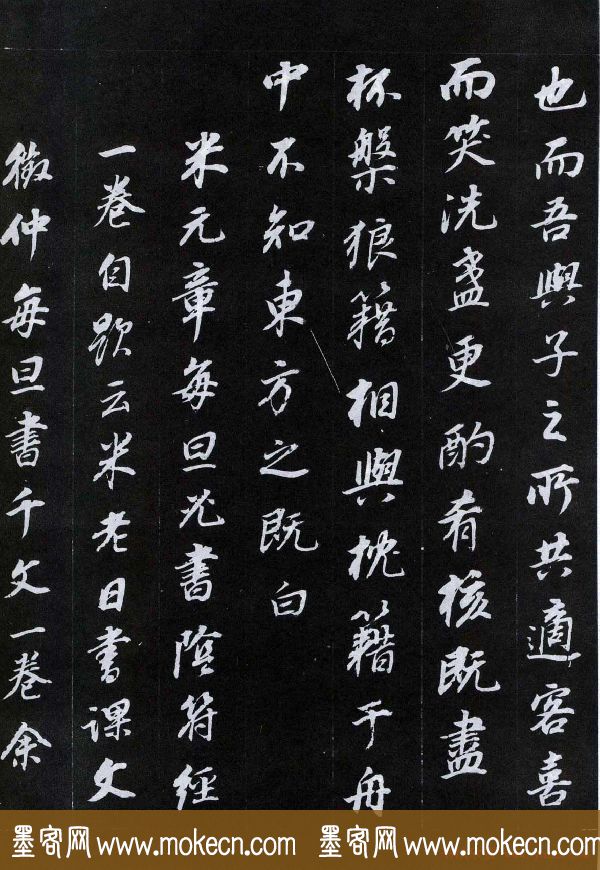 也而吾與子之所共適客喜
而笑洗盞更酌肴核既盡
杯槃狼籍相與枕籍于舟
中不知東方之既白
米元章每旦必書陰符經
一卷自題云米老日書課文
徵仲每旦書千文一卷余
墨客网 www.mokecn.com 墨客网 www.mokecn.com